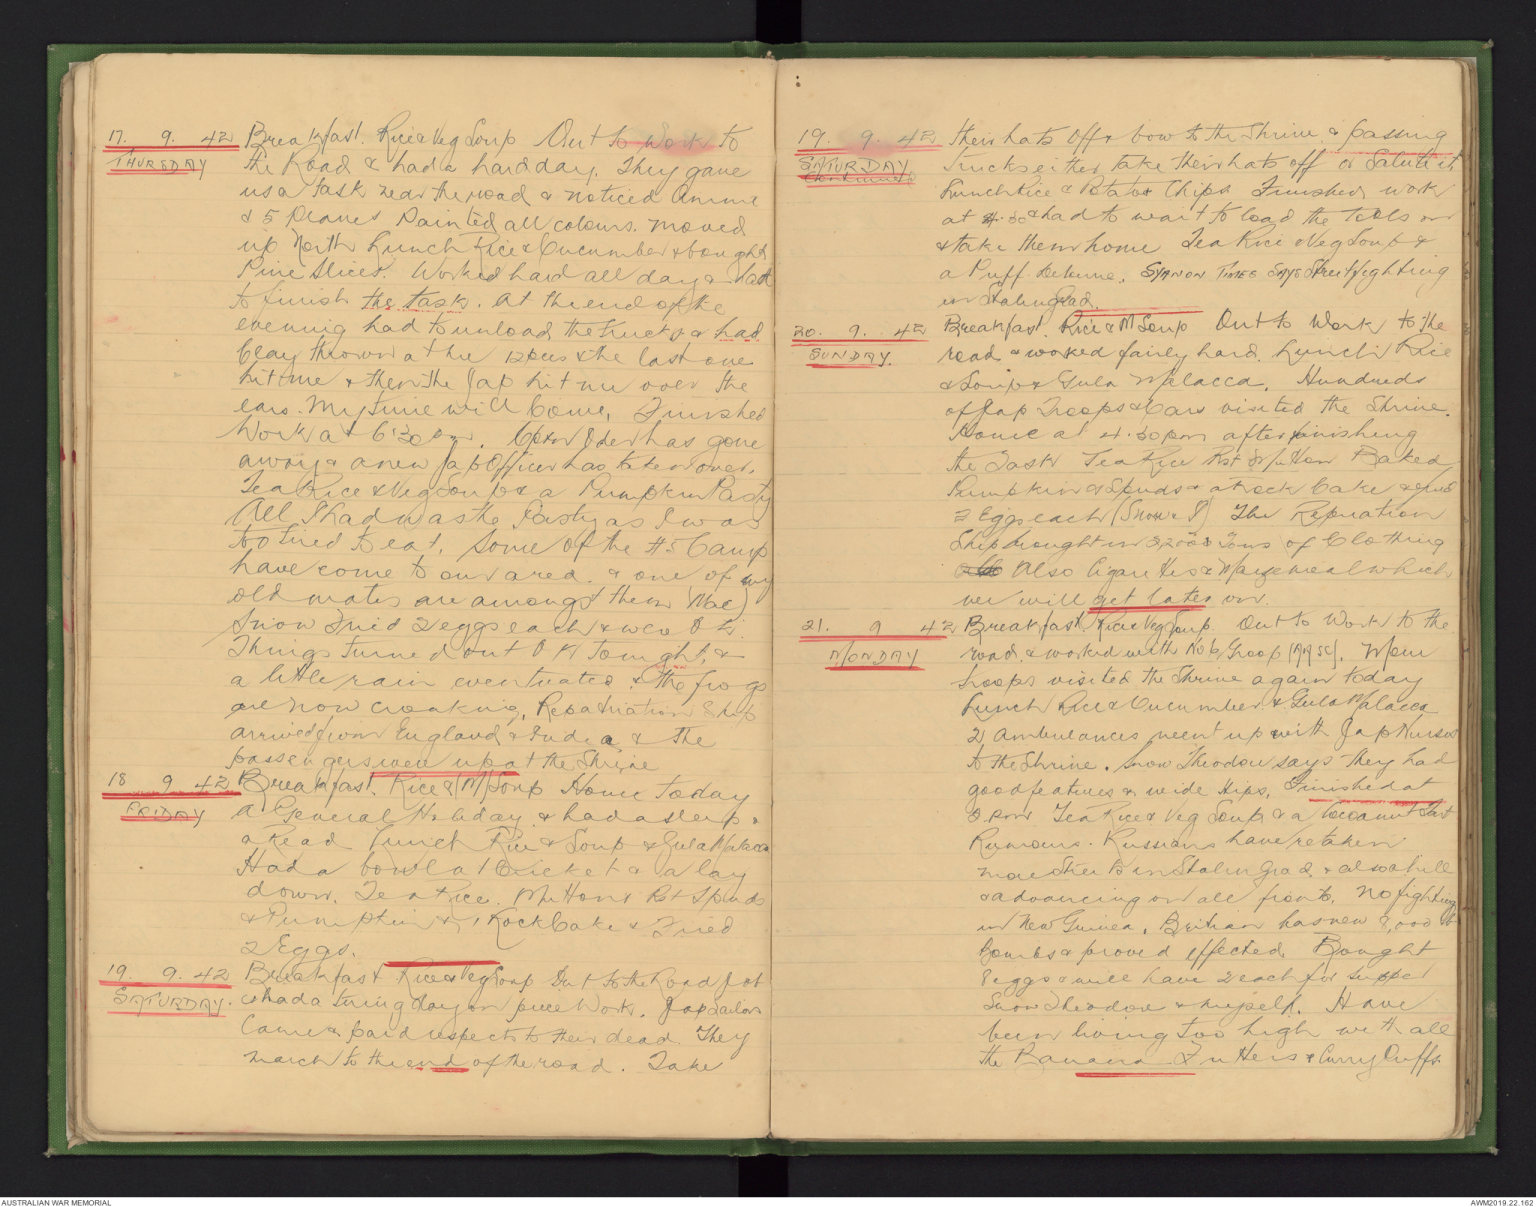 17. 9. 42 Breakfast. Rice & Veg Soup Out to work to
THURSDAY the Road & had a hard day. They gave
us a task near the road & noticed Ammo
& 5 Planes Painted all colours. moved
up North Lunch Rice & Cucumber & bought
Pine Slices. Worked hard all day & had
to finish the task. At the end of the
evening had to unload the trucks & had
Clay thrown at the & the last one
hit me & then the Jap hit me over the
ears. My time will Come, Finished
Work at 6.30 pm. has gone
away & a new Jap Officer has taken over.
Tea Rice & Veg Soup & a Pumpkin Pasty
All I had was the Pasty as I was
too tired to eat. Some of the #5 Camp
have come to our area. & one of my
old mates are amongst them (Mac)
Snow Fried 2 eggs each & were O.K.
Things turned out O K Tonight, &
a little rain eventuated & the frogs
are now croaking, Repatriation Ship
arrived from England & India & the
passengers were up at the Shrine
18 9 42 Breakfast. Rice & (M) Soup Home today
FRIDAY A General Holiday & had a sleep &
a Read Lunch Rice & Soup & Gula Malacca
Had a bowl at Cricket & a lay
down. Tea Rice. Mutton & Rst Spuds
& Pumpkin & 1 Rock Cake & Fried
2 Eggs.
19. 9. 42 Breakfast Rice & Veg Soup Out to the Road Job
SATURDAY. & had a tiring day on piece Work. Jap Sailors
Came & paid respects to their dead. They
march to the end of the road. Take
19 9. 42 their hats off & bow to the Shrine & passing
SATURDAY Trucks either take their hats off or Salute it.
Continued Lunch Rice & Potato Chips Finished work
at 4.30 & had to wait to load the tools on
& take them home Tea Rice & Veg Soup &
a Puff. SYONON TIMES SAYS Streetfighting
in Stalingrad.
20. 9. 42 Breakfast. Rice & M Soup Out to Work to the
SUNDAY. road & worked fairly hard. Lunch Rice
& Soup & Gula Malacca. Hundreds
of Jap Troops & Cars visited the Shrine.
Home at 4.30 pm after finishing
the Task Tea Rice Rst Mutton Baked
Pumpkin & Spuds & a rock Cake & fried
2 Eggs each (Snow & I) The Repriation
Ship brought in Tons of Clothing
Also Cigarettes & Maizemeal which
we will get later on.
21. 9 42 Breakfast. Rice & Veg Soup. Out to Work to the
MONDAY road. & worked with No 6 Group (AASC). More
troops visited the Shrine again today
Lunch Rice & Cucumber & Gula Malacca
2 ambulances went up with Jap Nurses
to the Shrine. Snow Theodore says they had
good features & wide Hips. Finished at
pm Tea Rice & Veg Soup & a Cocoanut Tart
Rumours. Russians have retaken
more Streets in Stalingrad. & also a hill
& advancing on all fronts. No fighting
in New Guinea. Britian has new 8,000 lb
bombs & proved effected Bought
eggs & will have 2 each for supper
Snow Theodore & myself. Have
been living too high with all
the Banana Fritters & Curry Puffs
AUSTRALIAN WAR MEMORIAL
AWM2019.22.162